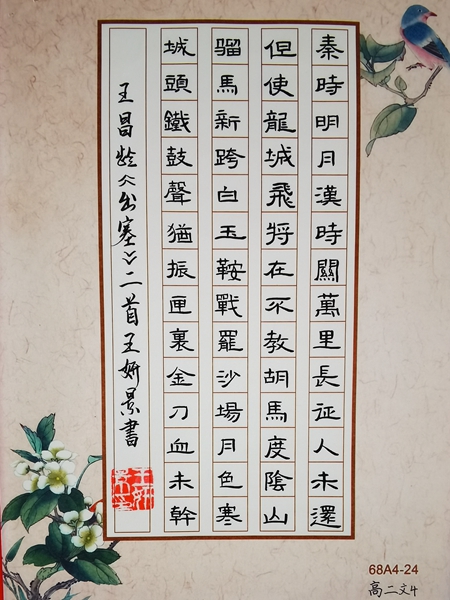 秦時明月漢時關萬里長征人未還
但使龍城飛將在不教胡馬度陰山
騮馬新跨白玉鞍戰罷沙場月色寒
城頭鐵鼓聲猶振匣裏金刀血未幹
王昌齡《出塞》二首王妍景書
68A4-24
高二文4